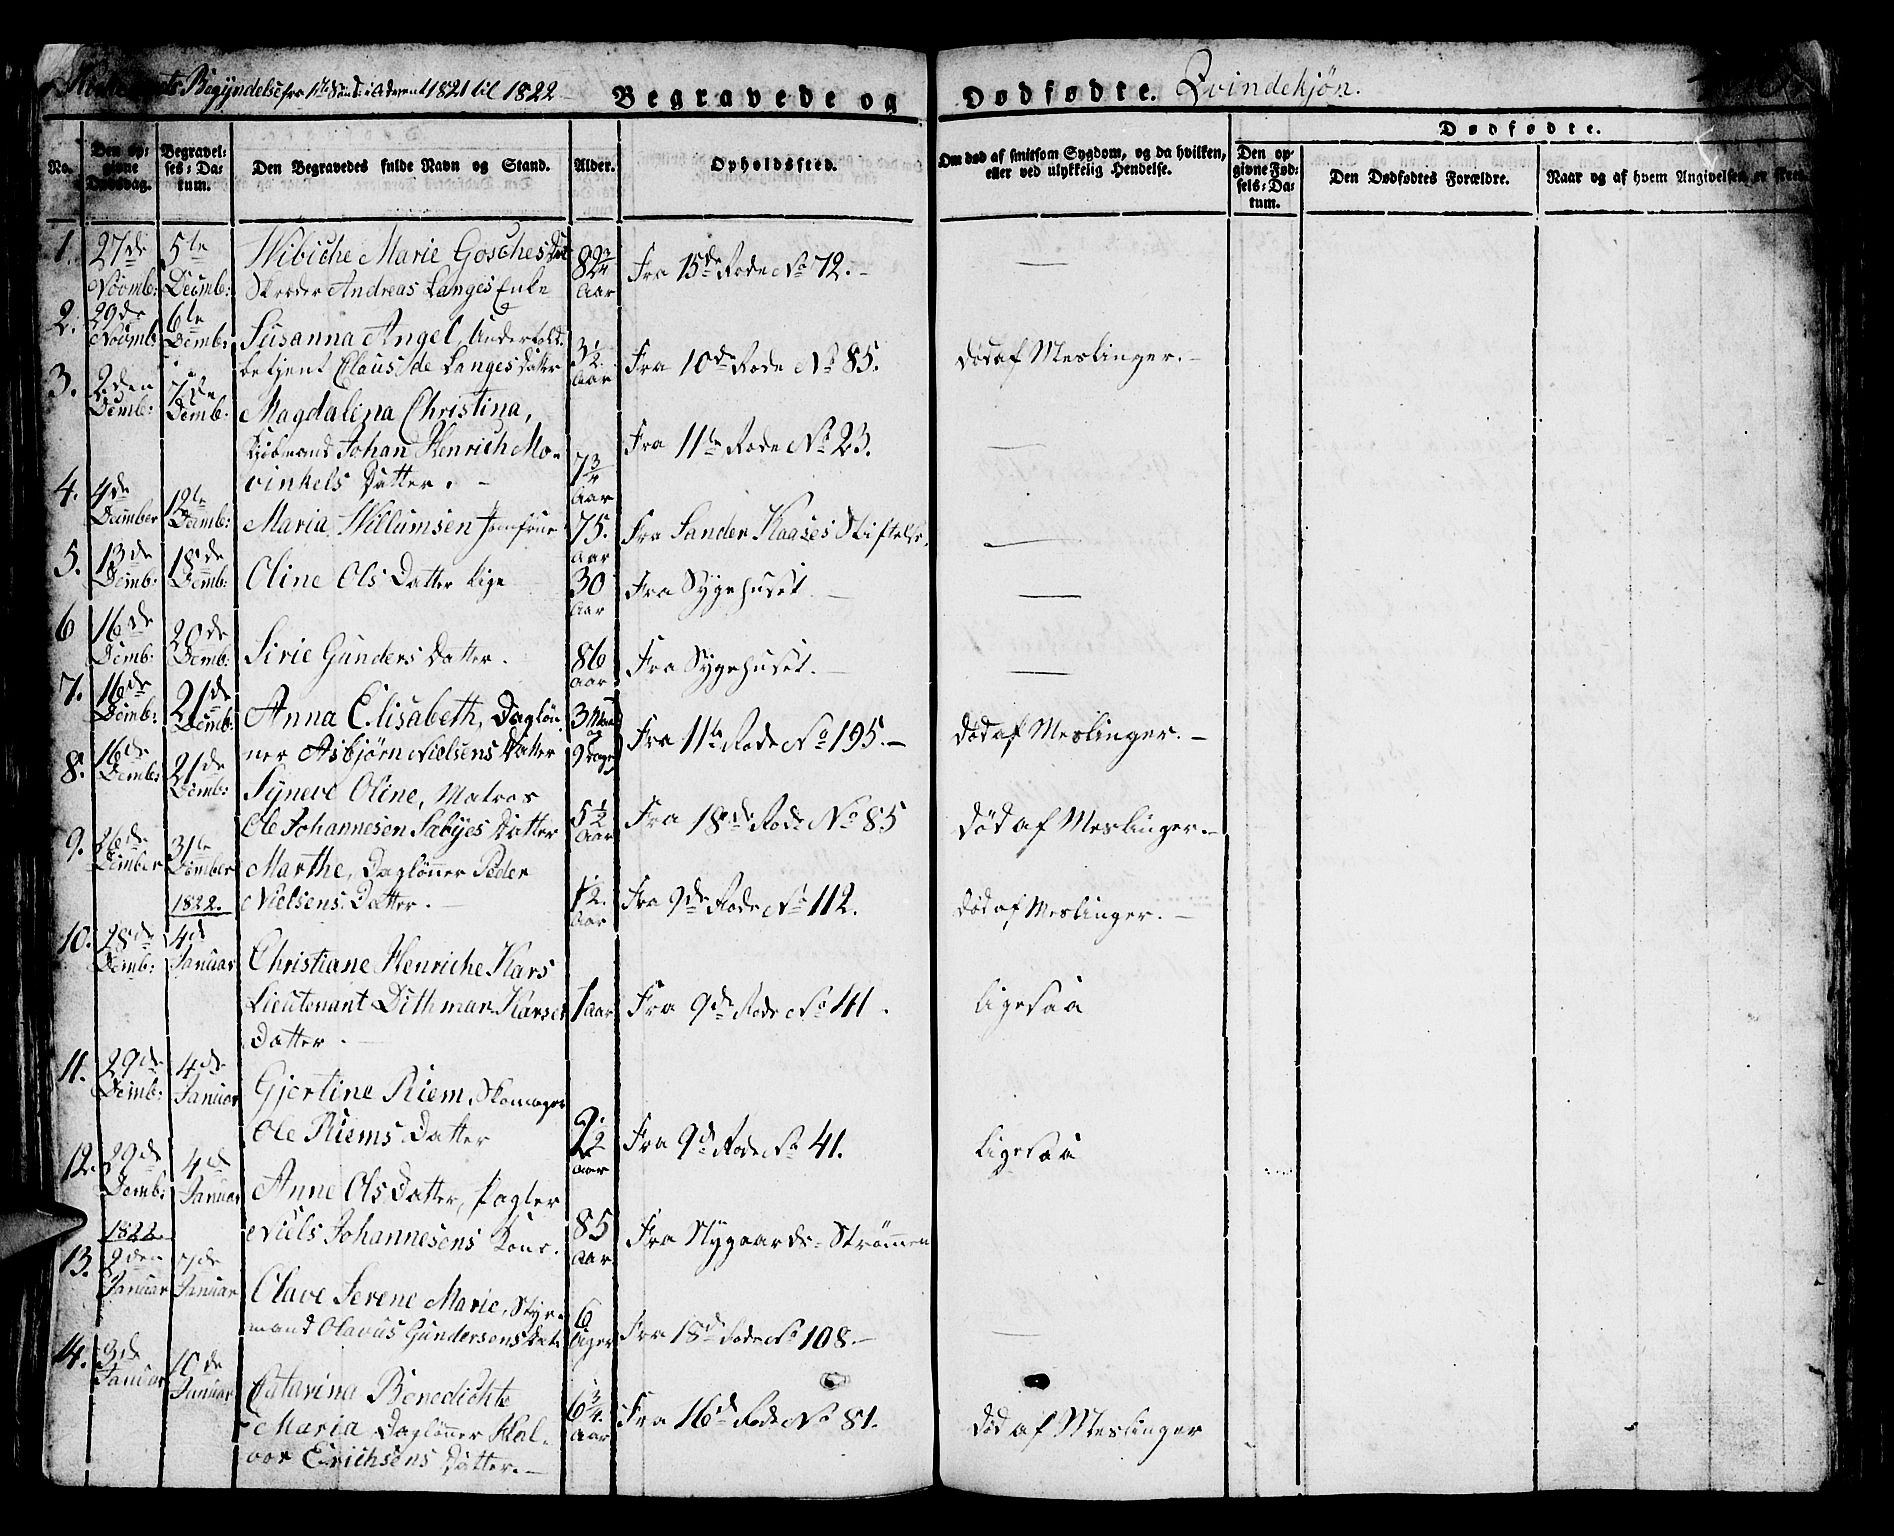 Begyndelse fra 1ste Sönd: i Advent 1821 til 1822
Begravede og Dödfödte. Qvindekjön.
No.
Den opgivne Dödsdag.
Begravelses-Datum.
Den Begravedes fulde Navn og Stand.
Alder.
Opholdssted.
Om död af smitsom Sygdom, og da hvilken, eller ved ulykkelig Hendelse.
Dödfödte.
Den opgivne Födsels-Datum.
Den Dödfödtes Forældre.
Naar og af hvem Angivelsen er skeet.
1. 27de Novmb: 5te Decmb: Wibiche Marie Gosches
Skræder Andreas Langes Enke 82 3/4 Aar Fra 15de Rode No 72. —
2. 29de Novmb: 6te Decmb: Susanna Angel, Undertold-
betjent Claus de Langes Datter 3 1/2 Aar Fra 10de Rode No 85. Död af Meslinger. —
3. 2den Decmb: 7de Decmb: Magdalina Christina,
Kjöbmand Johan Henrich Mo-
vinkels Datter. — 7 3/4 Aar Fra 11te Rode No 23. —
4. 4de December 12te Decemb: Maria Willumsen Jomfrue 75. Aar Fra Sander Kaases Stiftelse. —
5. 13de Decmb: 18de Decmb: Oline Ols Datter Pige 30 Aar Fra Sygehuset —
6 16de Decmb: 20de Decmb: Sirie Gunders Datter. 86 Aar Fra Sygehuset. —
7. 16de Decmb: 21de Decmb: Anna Elisabeth, Daglön-
ner Asbjörn Nielsens Datter 3 Maan og 9 Dage Fra 11te Rode No 195. — Död af Meslinger. —
8. 16de Decmb: 21de Decmb: Syneve Oline, Matros
Ole Johannesen Sæbyes Datter 5 1/2 Aar Fra 18de Rode No 85 Död af Meslinger. —
9. 26de December 31te December Marthe, Daglönner Peder
Nielsens Datter. — 1 1/2. Aar Fra 9de Rode No 112. Död af Meslinger. —
1822.
10. 28de Decmb: 4de Januar Christiane Henriche Kars
Lieutenant Dithmar Karses
Datter. — 1 aar Fra 9de Rode No 41. ligesaa
11. 29de Decmb: 4de Januar Gjertine Riem, Skomager
Ole Riems Datter 2 1/2 Aar Fra 9de Rode No 41. ligesaa
12. 29de Decmb: 4de Januar Anne Ols Datter,
Niels Johannesens Kone. 85 Aar Fra Nygaards-Strömmen
1822.
13. 2den Januar 7de Januar Olave Serene Marie, Styr-
mand Olavus Gundersens Dat: 6 Uger Fra 18de Rode No 108 — —
14. 3de Januar 10de Januar Catarina Benedichte
Maria Daglönner Hal-
vor Erichsens Datter. — 6 3/4. Aar Fra 16de Rode No 81. Död af Meslinger